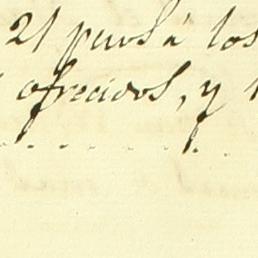 21 pesos á los
ofrecidos, y